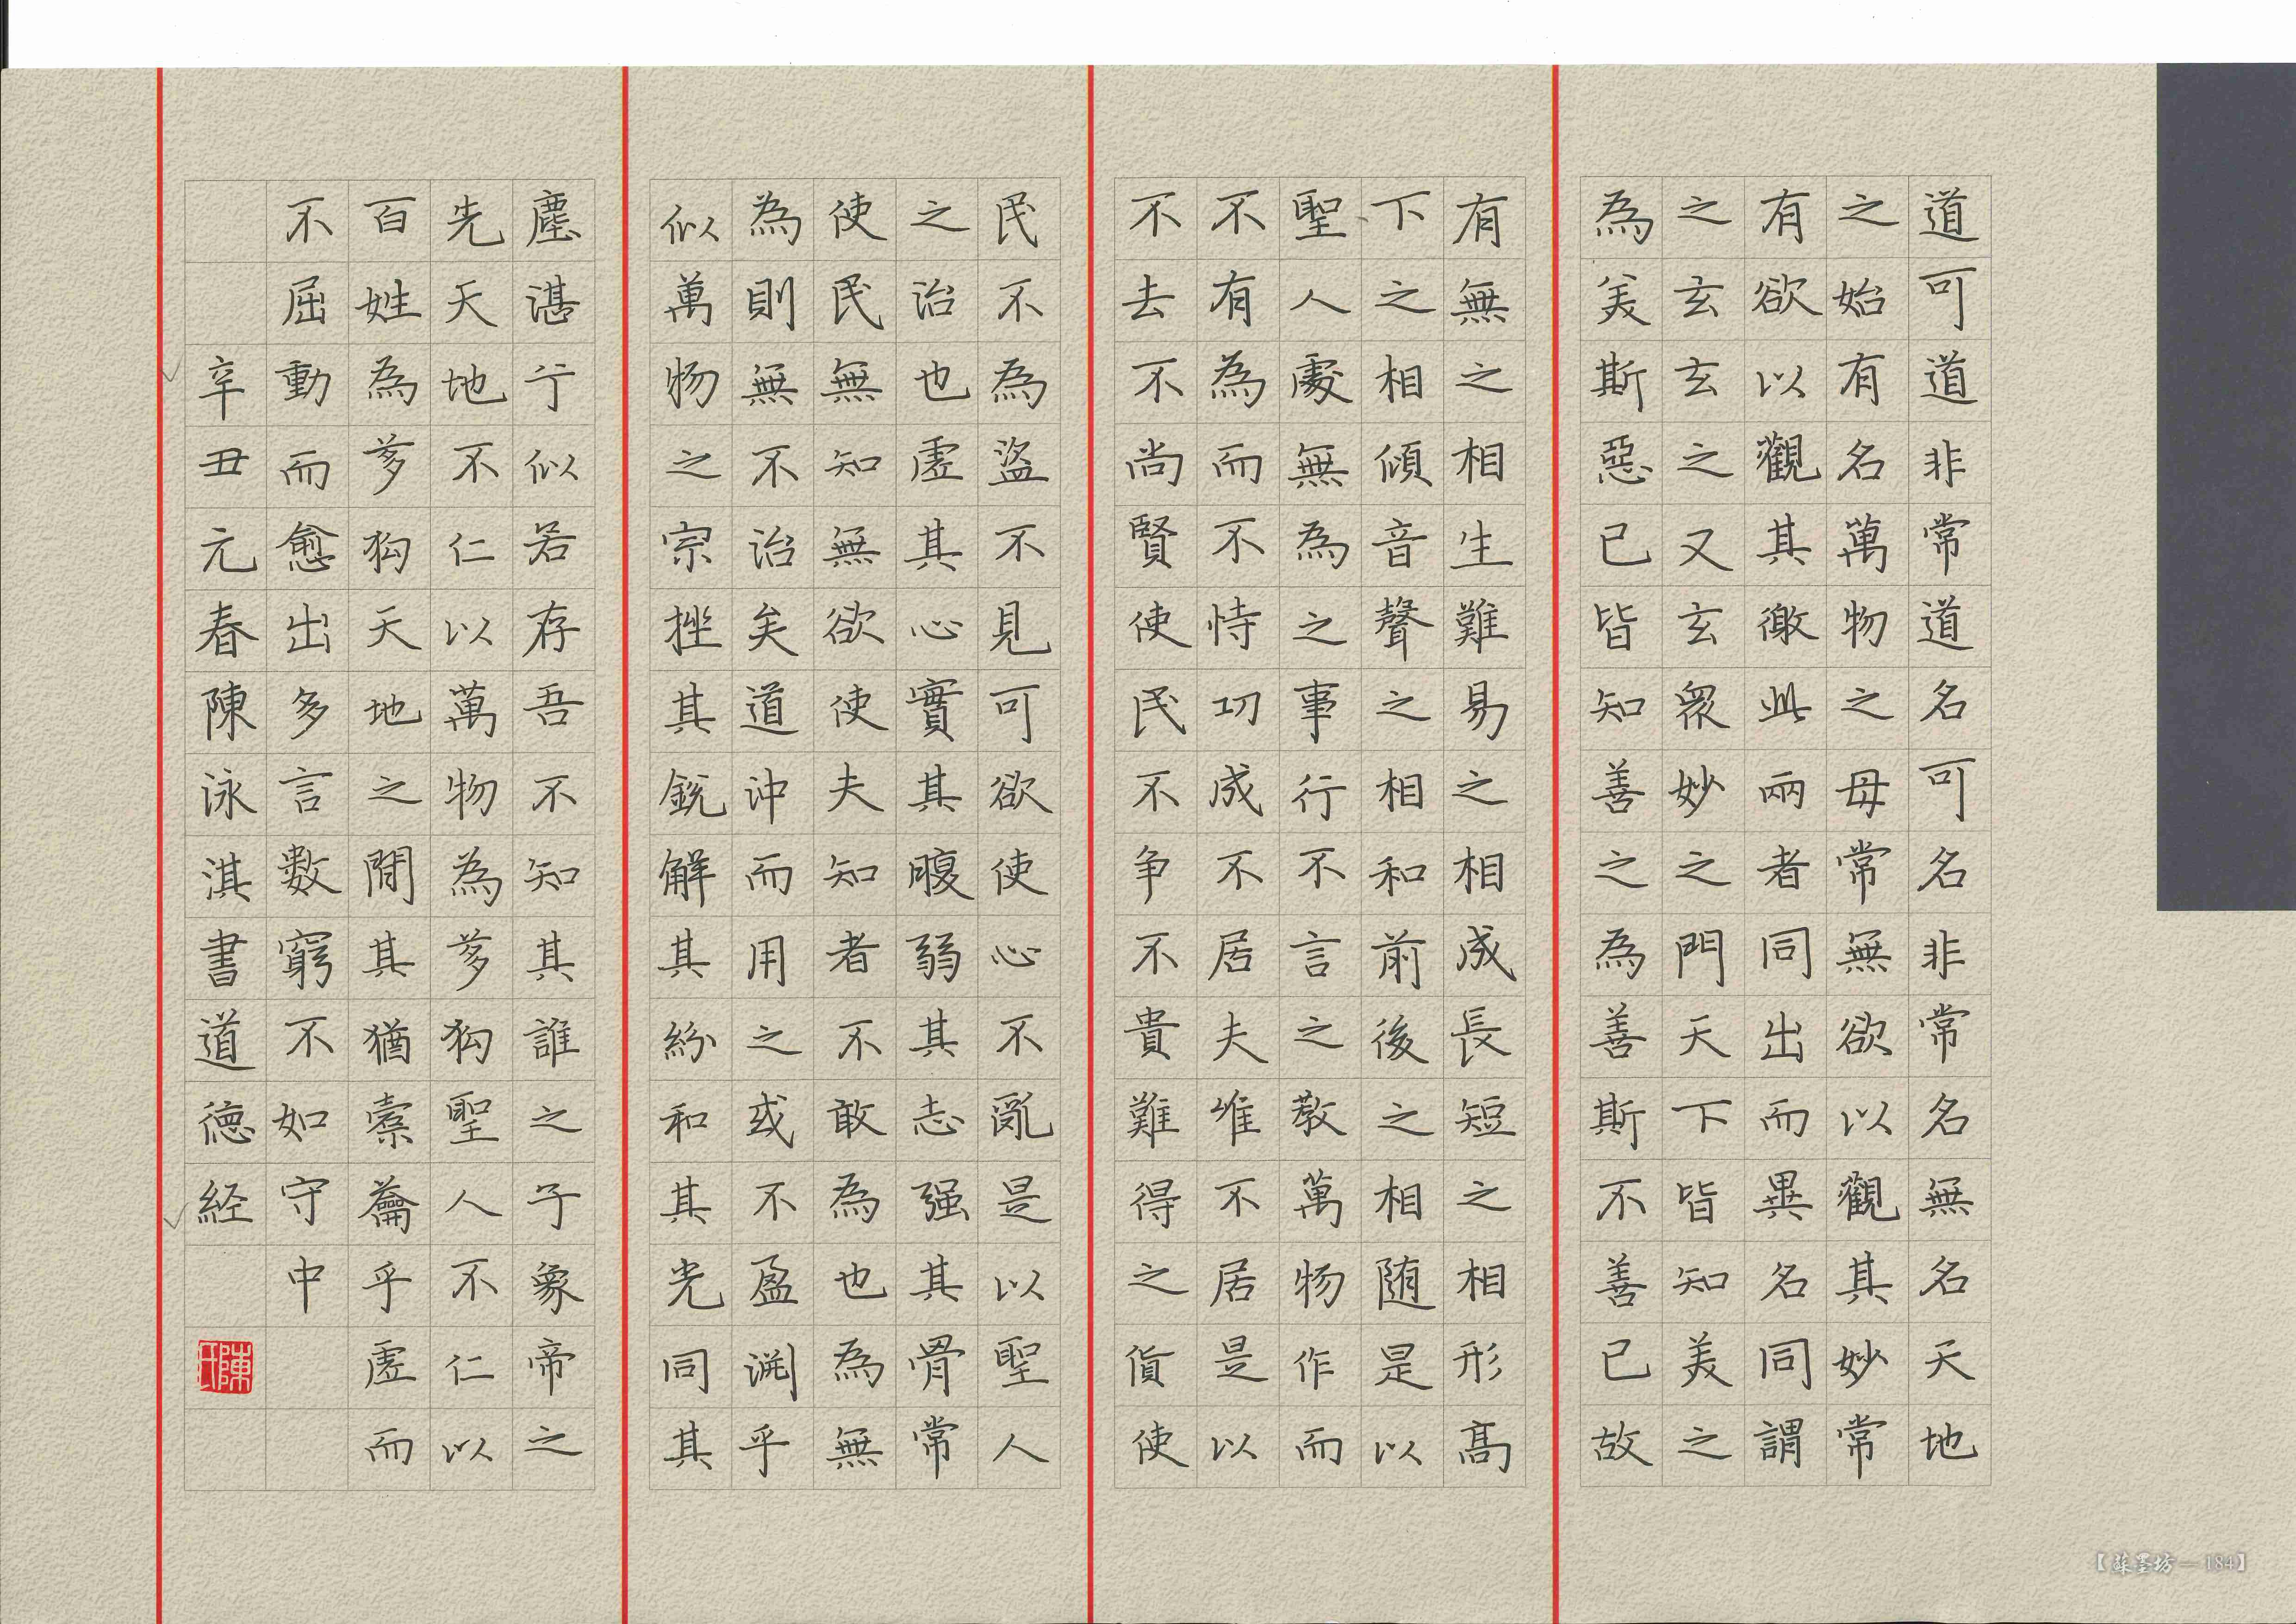 道可道非常道名可名非常名無名天地
之始有名萬物之母常無欲以觀其妙常
有欲以觀其徼此兩者同出而異名同謂
之玄玄之又玄眾妙之門天下皆知美之
為美斯惡已皆知善之為善斯不善已故
有無之相生難易之相成長短之相形高
下之相傾音聲之相和前後之相随是以
聖人處無為之事行不言之教萬物作而
不有為而不恃功成不居夫惟不居是以
不去不尚賢使民不争不貴難得之貨使
民不為盜不見可欲使心不亂是以聖人
之治也虛其心實其腹弱其志强其骨常
使民無知無欲使夫知者不敢為也為無
為則無不治矣道沖而用之或不盈淵乎
似萬物之宗挫其銳解其紛和其光同其
塵湛兮似若存吾不知其誰之子象帝之
先天地不仁以萬物為芻狗聖人不仁以
百姓為芻狗天地之間其猶橐籥乎虛而
不屈動而愈出多言數窮不如守中
辛丑元春陳泳淇書道德經
陳
【蘇墨坊—184】